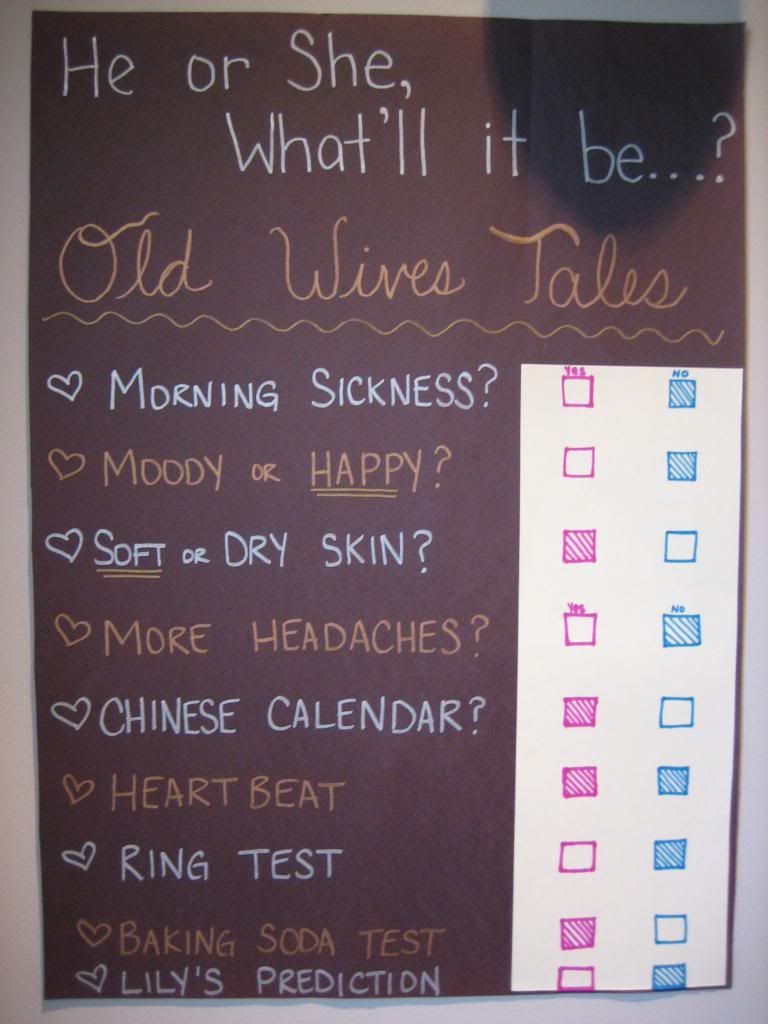 He or She,
What'll it be...?
Old Wives Tales
MORNING SICKNESS? Yes NO
MOODY OR HAPPY?
SOFT OR DRY SKIN?
MORE HEADACHES? Yes NO
CHINESE CALENDAR?
HEART BEAT
RING TEST
BAKING SODA TEST
LILY'S PREDICTION